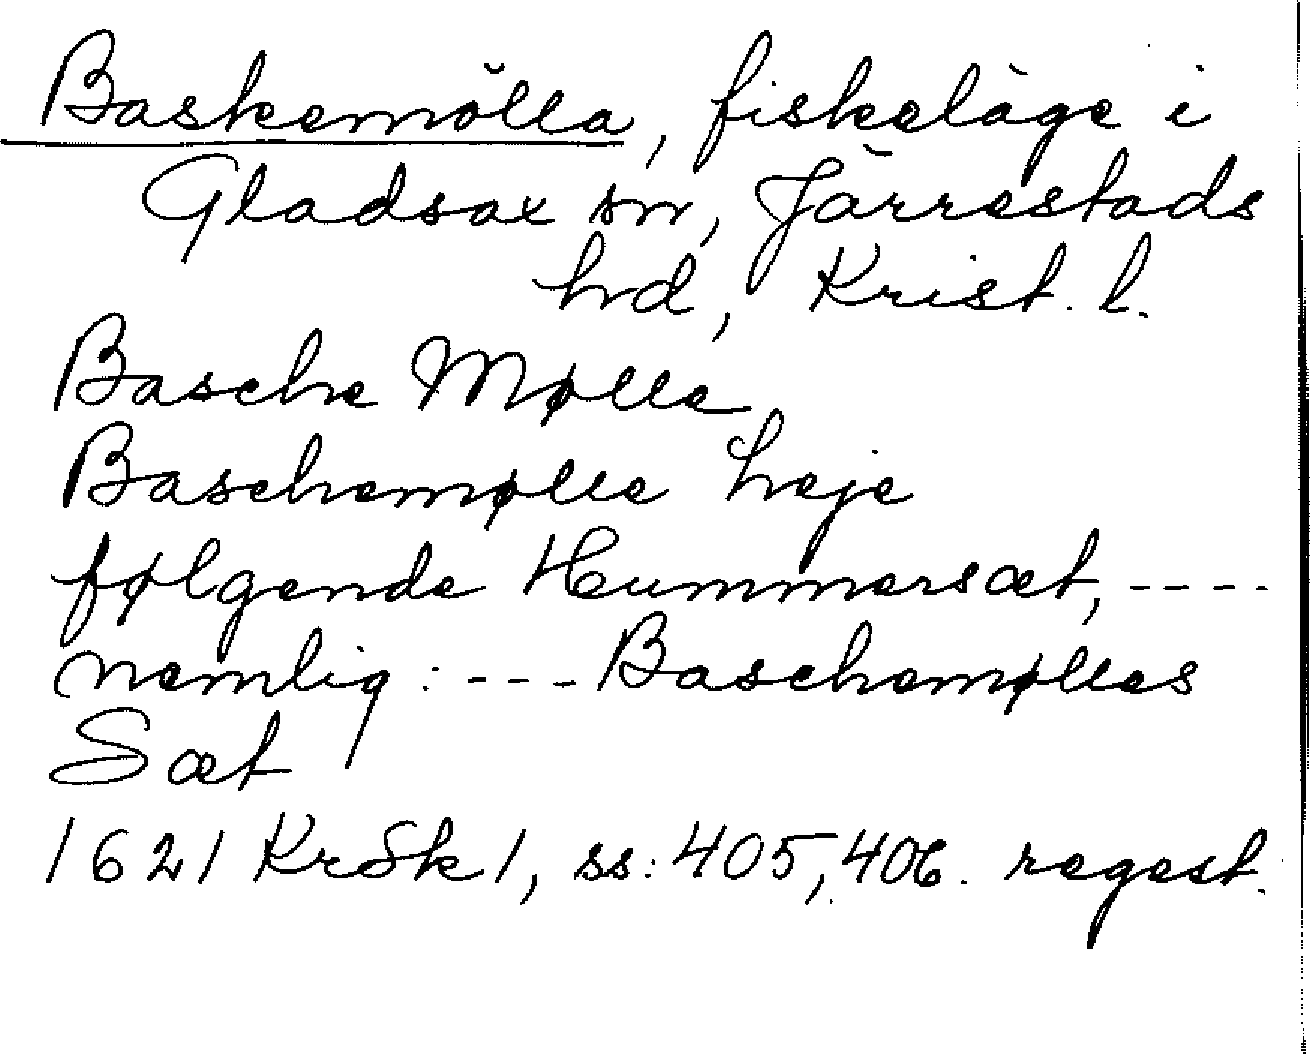 Baskemölla, fiskeläge i
Gladsax sn, Järrestads
hrd, Krist. l.
Basche Mølle
Baschemølle heje
følgende Hummersæt, ----
nemlig: --- Baschemølles
Sæt
1621 KrSk 1, ss: 405, 406. regest.